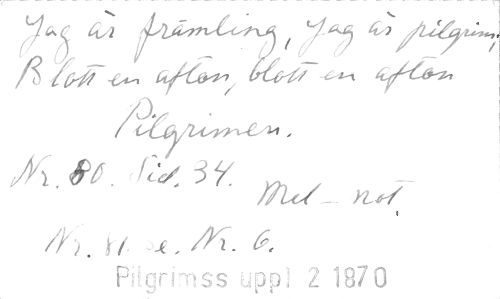 Jag är främling, Jag är pilgrim;
Blott en afton, blott en afton
Pilgrimen.
Nr. 80. Sid. 34.
Mel - not.
Nr. 81. se. Nr. 6.
Pilgrimss uppl 2 1870